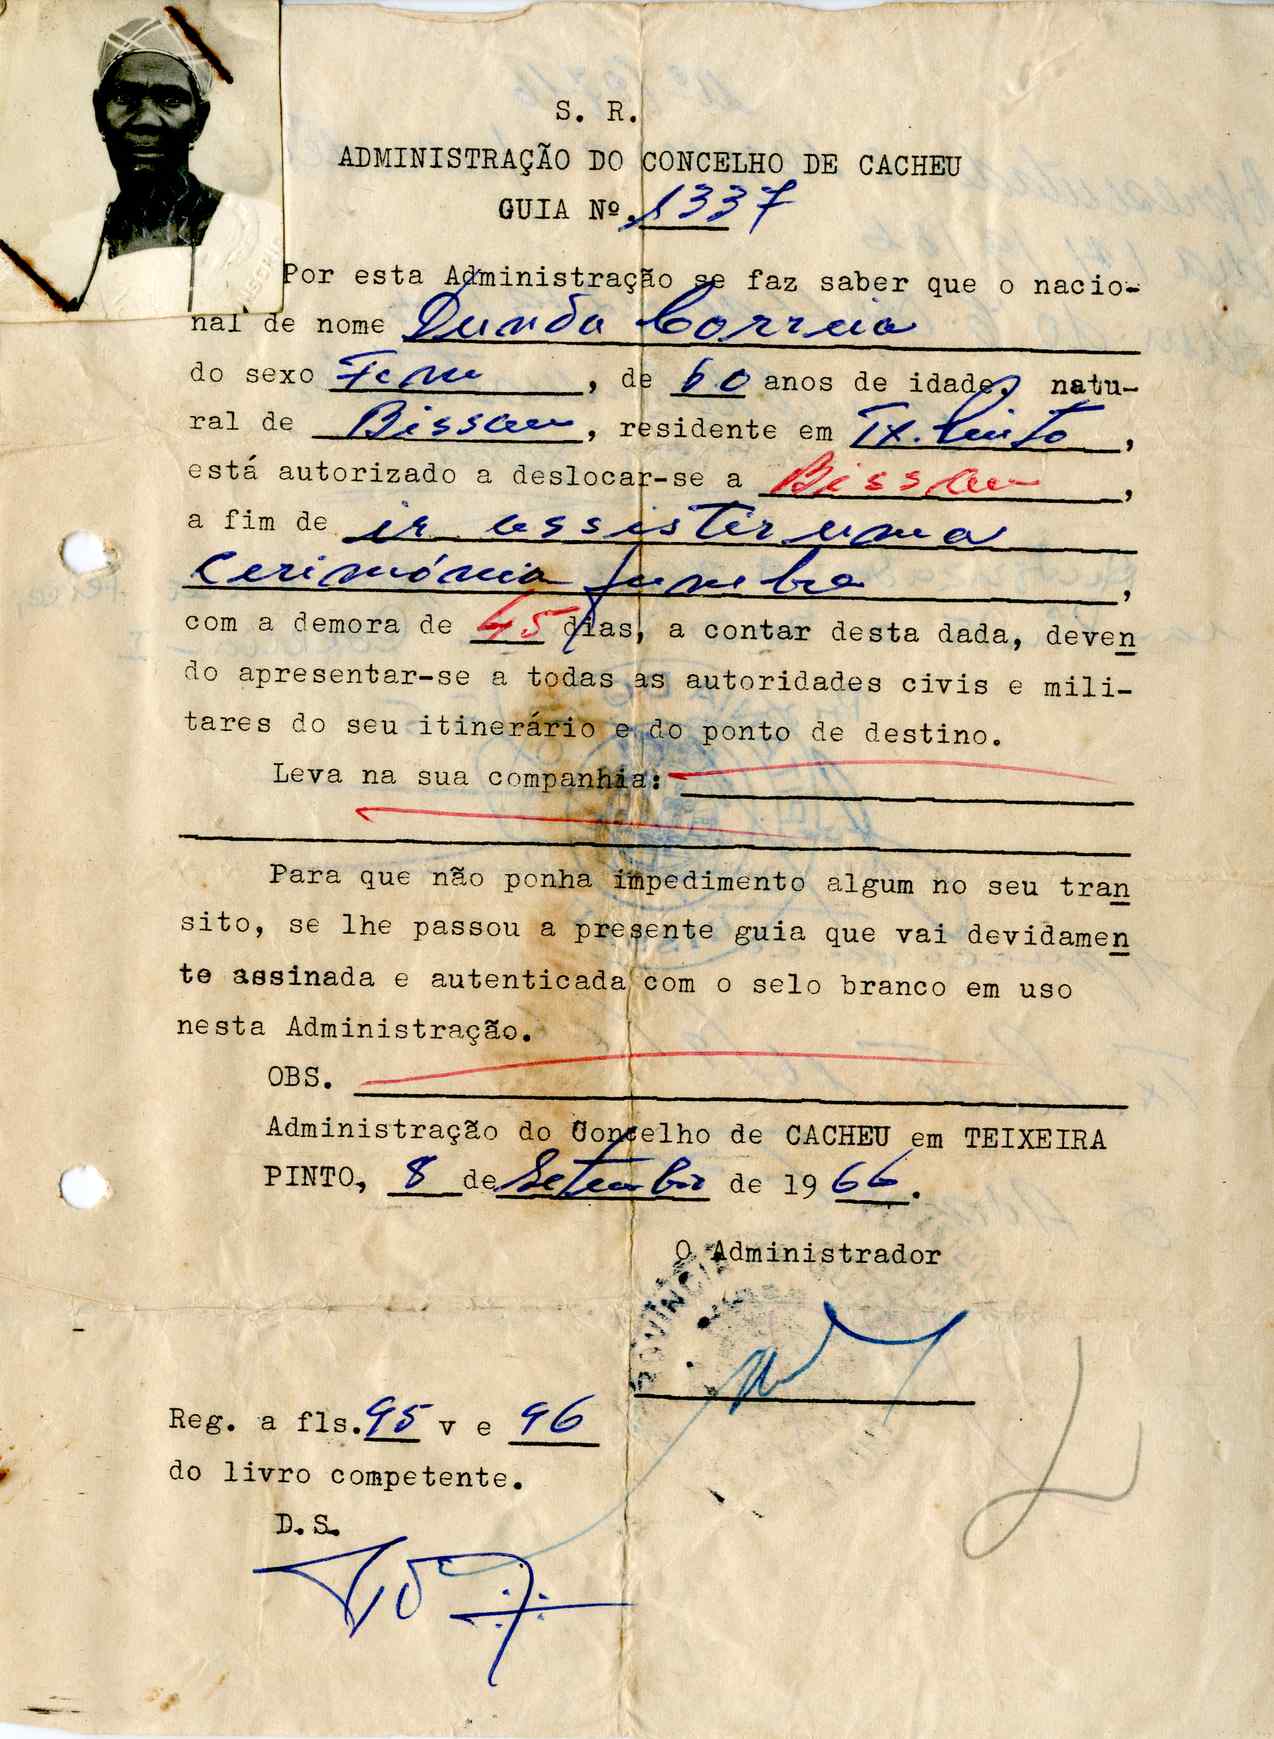 S. R.
ADMINISTRAÇÃO DO CONCELHO DE CACHEU
GUIA Nº 1337
Por esta Administração se faz saber que o nacio-
nal de nome Dunda Correia
do sexo Fem , de 60 anos de idade, natu-
ral de Bissau , residente em Tx. Pinto ,
está autorizado a deslocar-se a Bissau ,
a fim de ir assistir uma
cerimónia funebre ,
com a demora de 45 dias, a contar desta dada, deven
do apresentar-se a todas as autoridades civis e mili-
tares do seu itinerário e do ponto de destino.
Leva na sua companhia:
Para que não ponha impedimento algum no seu tran
sito, se lhe passou a presente guia que vai devidamen
te assinada e autenticada com o selo branco em uso
nesta Administração.
OBS.
Administração do Concelho de CACHEU em TEIXEIRA
PINTO, 8 de Setembro de 1966.
O Administrador
PROVÍNCIA
Reg. a fls. 95 v e 96
do livro competente.
D.S.